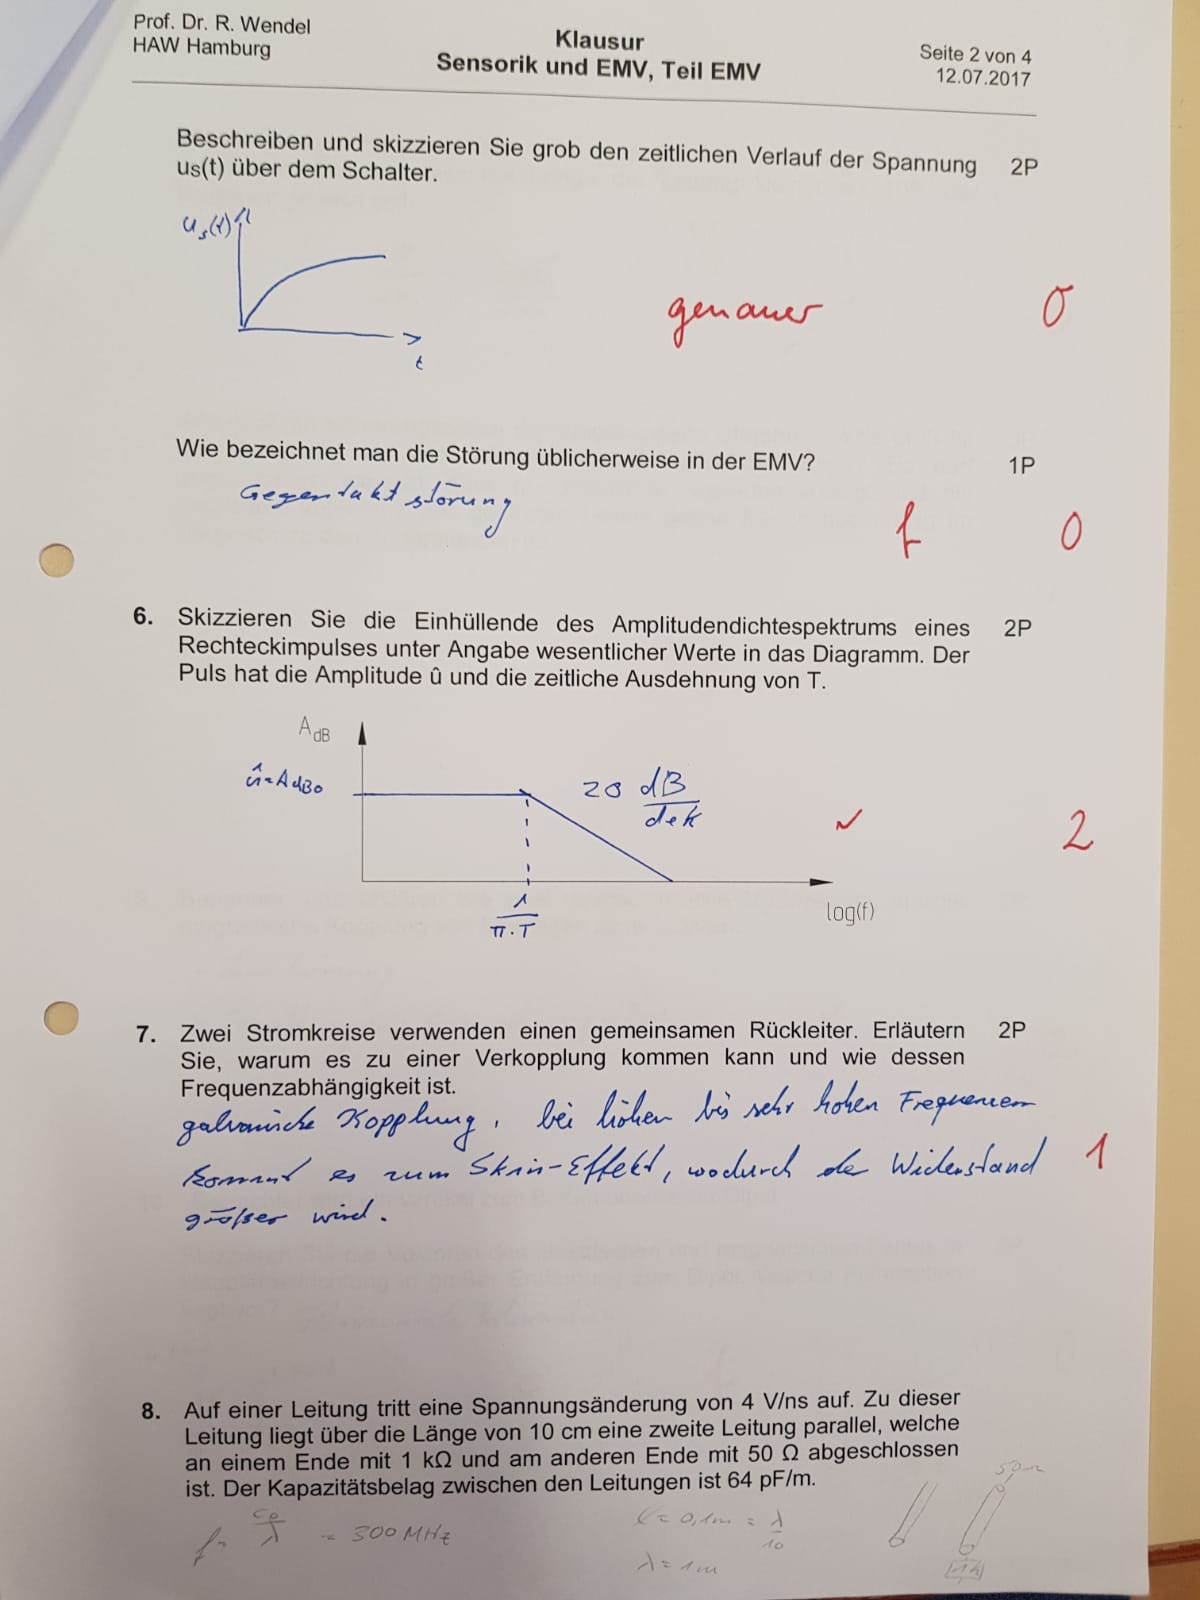 Prof. Dr. R. Wendel
HAW Hamburg
Klausur
Sensorik und EMV, Teil EMV
Seite 2 von 4
12.07.2017
Beschreiben und skizzieren Sie grob den zeitlichen Verlauf der Spannung 2P
us(t) über dem Schalter.
us(t)
t
genauer 0
Wie bezeichnet man die Störung üblicherweise in der EMV? 1P
Gegentaktstörung
f 0
6. Skizzieren Sie die Einhüllende des Amplitudendichtespektrums eines 2P
Rechteckimpulses unter Angabe wesentlicher Werte in das Diagramm. Der
Puls hat die Amplitude û und die zeitliche Ausdehnung von T.
AdB
û=AdB0
20 dB/dek
✓ 2
1/π·T
log(f)
7. Zwei Stromkreise verwenden einen gemeinsamen Rückleiter. Erläutern 2P
Sie, warum es zu einer Verkopplung kommen kann und wie dessen
Frequenzabhängigkeit ist.
galvanische Kopplung, bei hohen bis sehr hohen Frequenzen
kommt es zum Skin-Effekt, wodurch der Widerstand 1
größer wird.
8. Auf einer Leitung tritt eine Spannungsänderung von 4 V/ns auf. Zu dieser
Leitung liegt über die Länge von 10 cm eine zweite Leitung parallel, welche
an einem Ende mit 1 kΩ und am anderen Ende mit 50 Ω abgeschlossen
ist. Der Kapazitätsbelag zwischen den Leitungen ist 64 pF/m.
50Ω
f = c0/λ = 300 MHz
l = 0,1m = λ/10
λ = 1m
1k